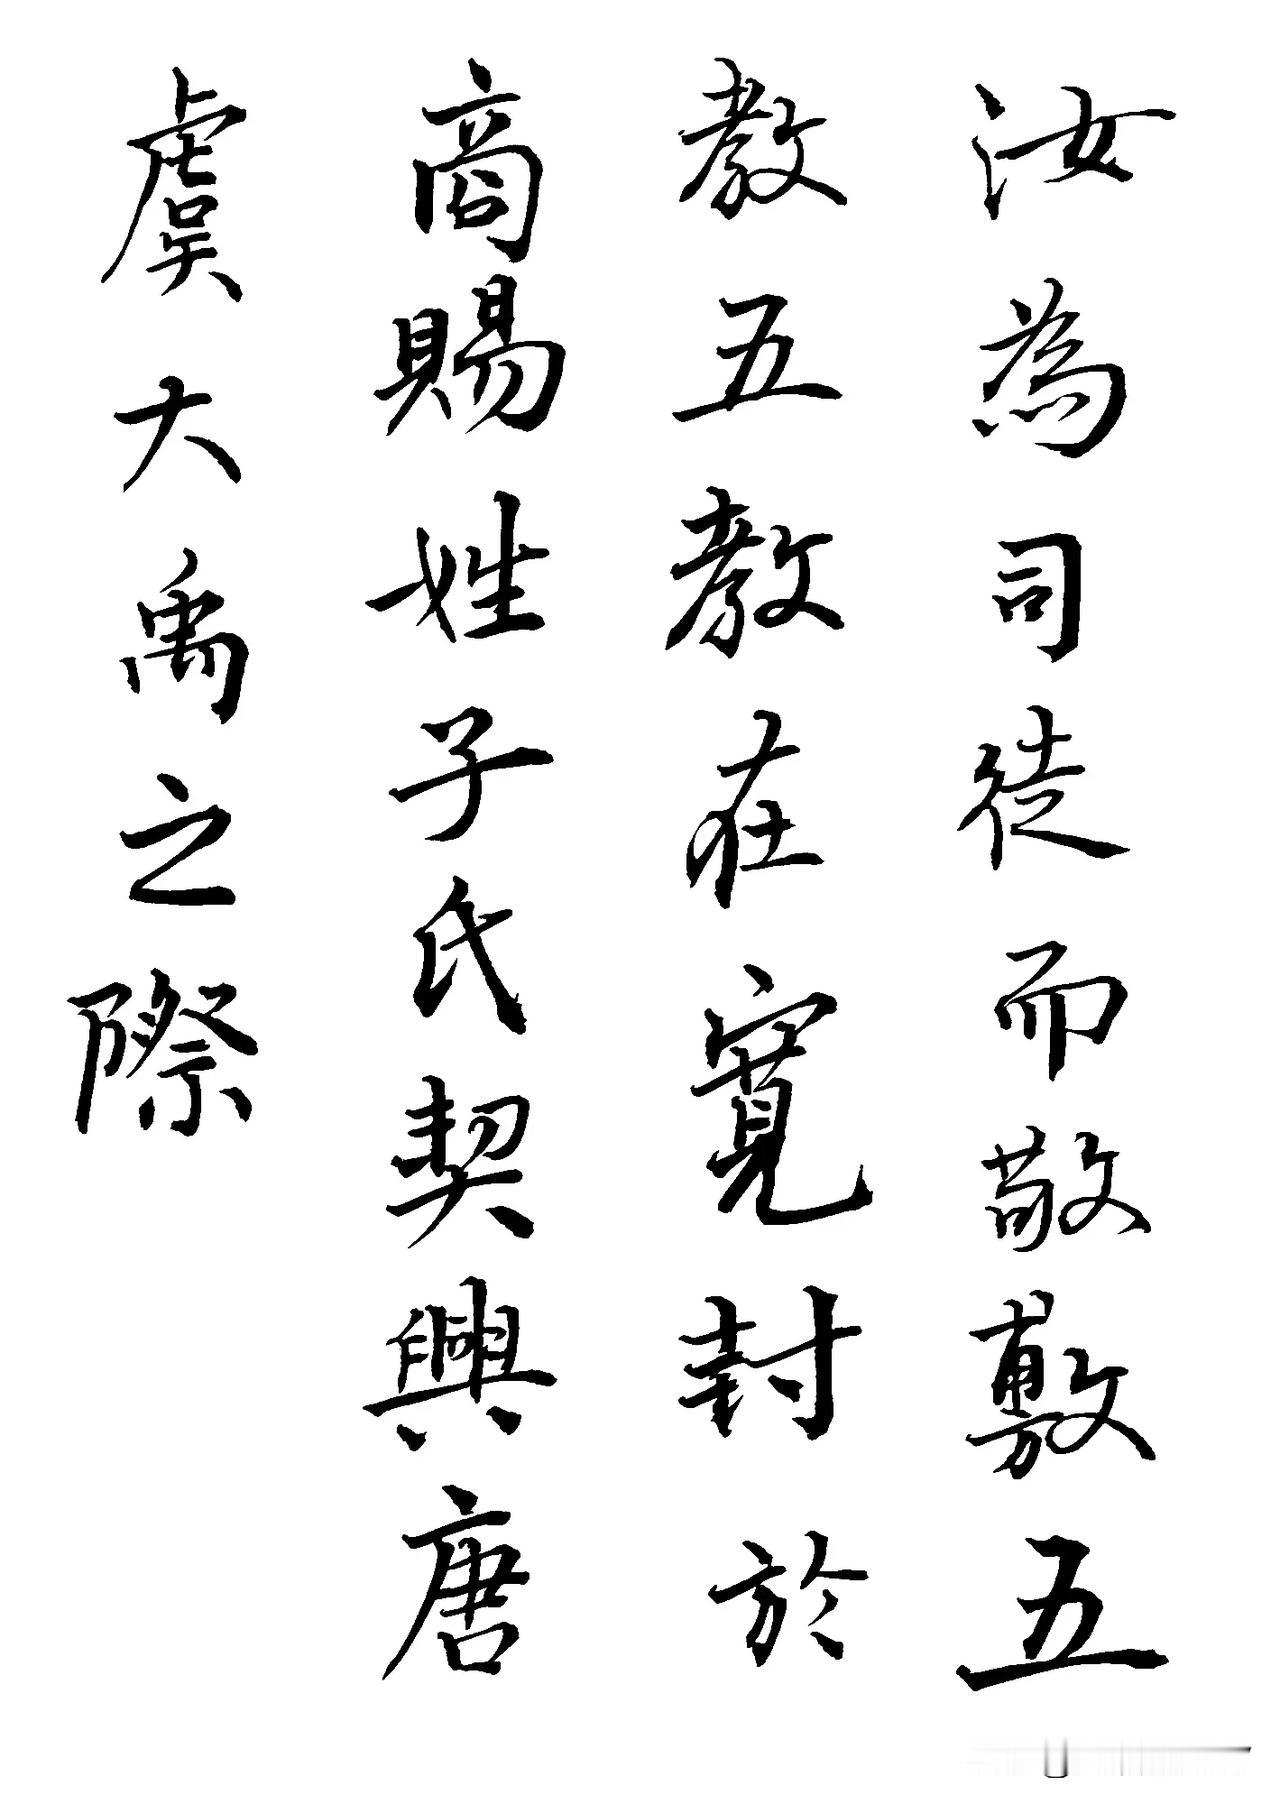 汝為司徒而敬敷五
教五教在寬封於
商賜姓子氏契興唐
虞大禹之際